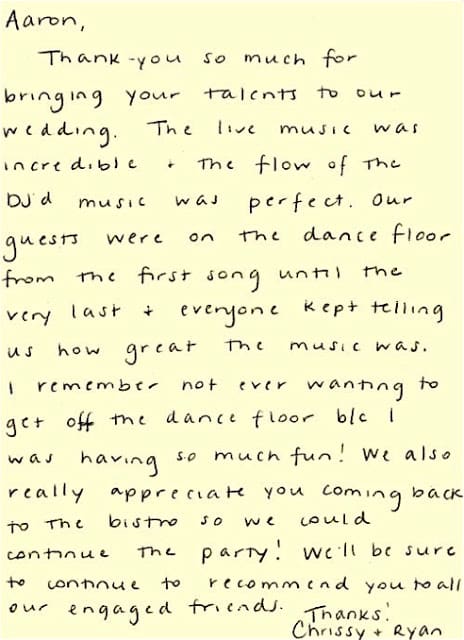 Aaron,
Thank-you so much for
bringing your talents to our
wedding. The live music was
incredible + the flow of the
DJ'd music was perfect. Our
guests were on the dance floor
from the first song until the
very last + everyone kept telling
us how great the music was.
I remember not ever wanting to
get off the dance floor b/c I
was having so much fun! We also
really appreciate you coming back
to the bistro so we could
continue the party! We'll be sure
to continue to recommend you to all
our engaged friends.
Thanks!
Chrissy + Ryan